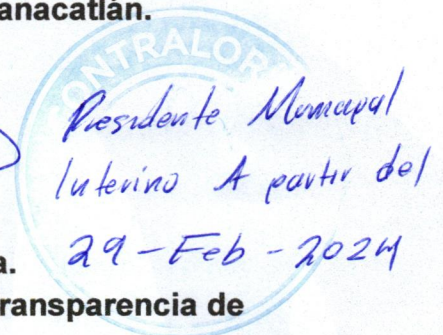 anacatlán.
CONTRALOR
Presidente Municipal
Interino A partir del
29-Feb-2024
a.
ransparencia de